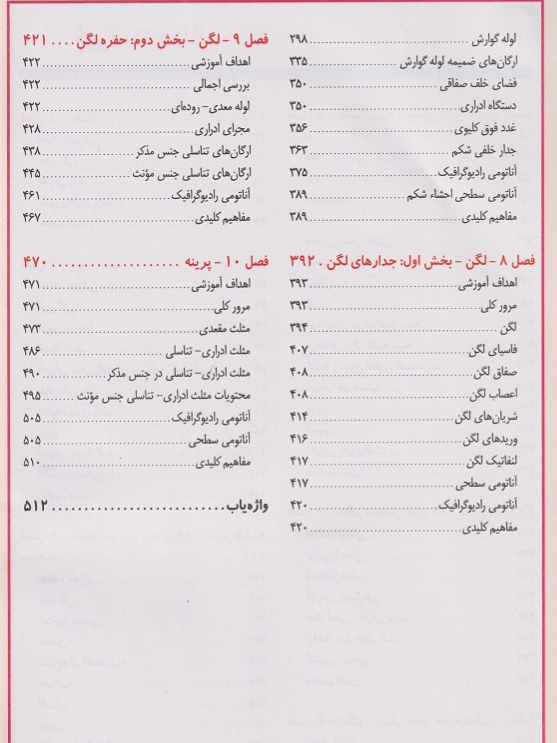 لوله گوارش ........ ۲۹۸
ارگان‌های ضمیمه لوله گوارش ........ ۳۳۵
فضای خلف صفاقی ........ ۳۵۰
دستگاه ادراری ........ ۳۵۰
غدد فوق کلیوی ........ ۳۵۶
جدار خلفی شکم ........ ۳۶۳
آناتومی رادیوگرافیک ........ ۳۷۵
آناتومی سطحی احشاء شکم ........ ۳۸۹
مفاهیم کلیدی ........ ۳۸۹
فصل ۸ - لگن - بخش اول: جدارهای لگن . ۳۹۲
اهداف آموزشی ........ ۳۹۳
مرور کلی ........ ۳۹۳
لگن ........ ۳۹۴
فاسیای لگن ........ ۴۰۷
صفاق لگن ........ ۴۰۸
اعصاب لگن ........ ۴۰۸
شریان‌های لگن ........ ۴۱۴
وریدهای لگن ........ ۴۱۶
لنفاتیک لگن ........ ۴۱۷
آناتومی سطحی ........ ۴۱۷
آناتومی رادیوگرافیک ........ ۴۲۰
مفاهیم کلیدی ........ ۴۲۰
فصل ۹ - لگن - بخش دوم: حفره لگن .... ۴۲۱
اهداف آموزشی ........ ۴۲۲
بررسی اجمالی ........ ۴۲۲
لوله معدی- روده‌ای ........ ۴۲۲
مجرای ادراری ........ ۴۲۸
ارگان‌های تناسلی جنس مذکر ........ ۴۳۸
ارگان‌های تناسلی جنس مؤنث ........ ۴۴۵
آناتومی رادیوگرافیک ........ ۴۶۱
مفاهیم کلیدی ........ ۴۶۷
فصل ۱۰ - پرینه ........ ۴۷۰
اهداف آموزشی ........ ۴۷۱
مرور کلی ........ ۴۷۱
مثلث مقعدی ........ ۴۷۳
مثلث ادراری- تناسلی ........ ۴۸۶
مثلث ادراری- تناسلی در جنس مذکر ........ ۴۹۰
محتویات مثلث ادراری- تناسلی جنس مؤنث ........ ۴۹۵
آناتومی رادیوگرافیک ........ ۵۰۵
آناتومی سطحی ........ ۵۰۵
مفاهیم کلیدی ........ ۵۱۰
واژه‌یاب ........ ۵۱۲